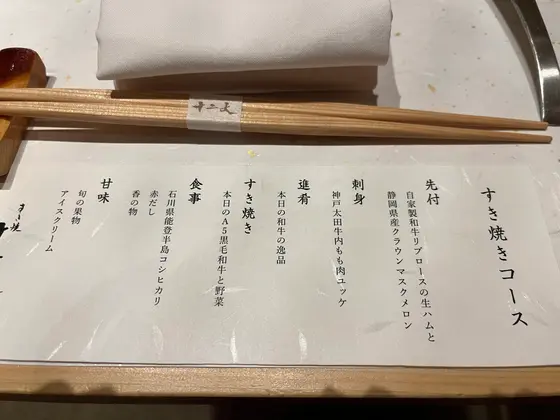 すき焼きコース
先付
自家製和牛リブロースの生ハムと
静岡県産クラウンマスクメロン
刺身
神戸太田牛内もも肉ユッケ
進肴
本日の和牛の逸品
すき焼き
本日のA5黒毛和牛と野菜
食事
石川県能登半島コシヒカリ
赤だし
香の物
甘味
旬の果物
アイスクリーム
すき焼